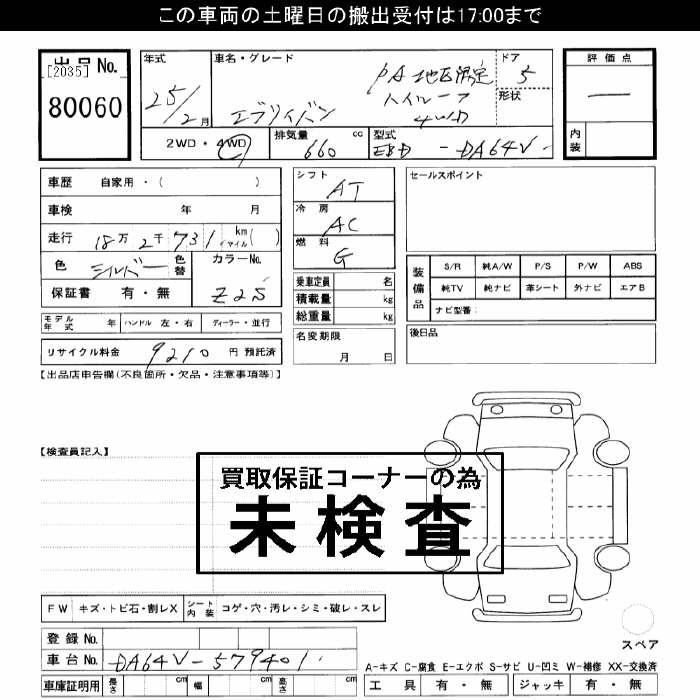 この車両の土曜日の搬出受付は17:00まで
出品 No.
[2035]
80060
年式
25/2月
車名・グレード
PA 地区限定
ハイルーフ
4WD
エブリイバン
ドア
5
形状
評価点
—
内装
2WD・4WD
排気量 cc
660
型式
EBD - DA64V
車歴 自家用・( )
車検 年 月
走行 18万2千731 km マイル( )
色 シルバー 色替
カラーNo.
Z2S
保証書 有・無
モデル年式 年 ハンドル 左・右 ディーラー・並行
リサイクル料金 9210 円 預託済
シフト
AT
冷房
AC
燃料
G
乗車定員 名
積載量 kg
総重量 kg
名変期限
月 日
セールスポイント
装備品
S/R 純A/W P/S P/W ABS
純TV 純ナビ 革シート 外ナビ エアB
ナビ型番:
後日品
【出品店申告欄(不良箇所・欠品・注意事項等)】
【検査員記入】
買取保証コーナーの為
未検査
FW キズ・トビ石・割レX シート内装 コゲ・穴・汚レ・シミ・破レ・スレ
登録No.
車台No. DA64V-579401
車庫証明用 長さ cm 幅 cm 高さ cm
スペア
A-キズ C-腐食 E-エクボ S-サビ U-凹ミ W-補修 XX-交換済
工具 有・無 ジャッキ 有・無